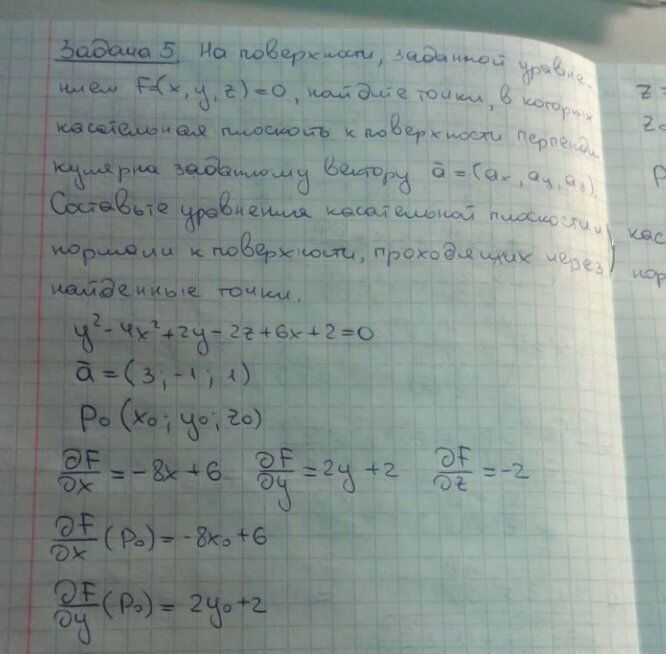 Задача 5. На поверхности, заданной уравне-
нием F=(x, y, z)=0, найдите точки, в которых
касательная плоскость к поверхности перпенди
кулярна заданному вектору ā = (aₓ, aᵧ, a_z).
Составьте уравнения касательной плоскости и
нормали к поверхности, проходящих через
найденные точки.
y²-4x²+2y-2z+6x+2=0
ā = (3; -1; 1)
P₀ (x₀; y₀; z₀)
∂F/∂x = -8x+6 ∂F/∂y = 2y+2 ∂F/∂z = -2
∂F/∂x (P₀) = -8x₀+6
∂F/∂y (P₀) = 2y₀+2
z
z
P
кас
нор